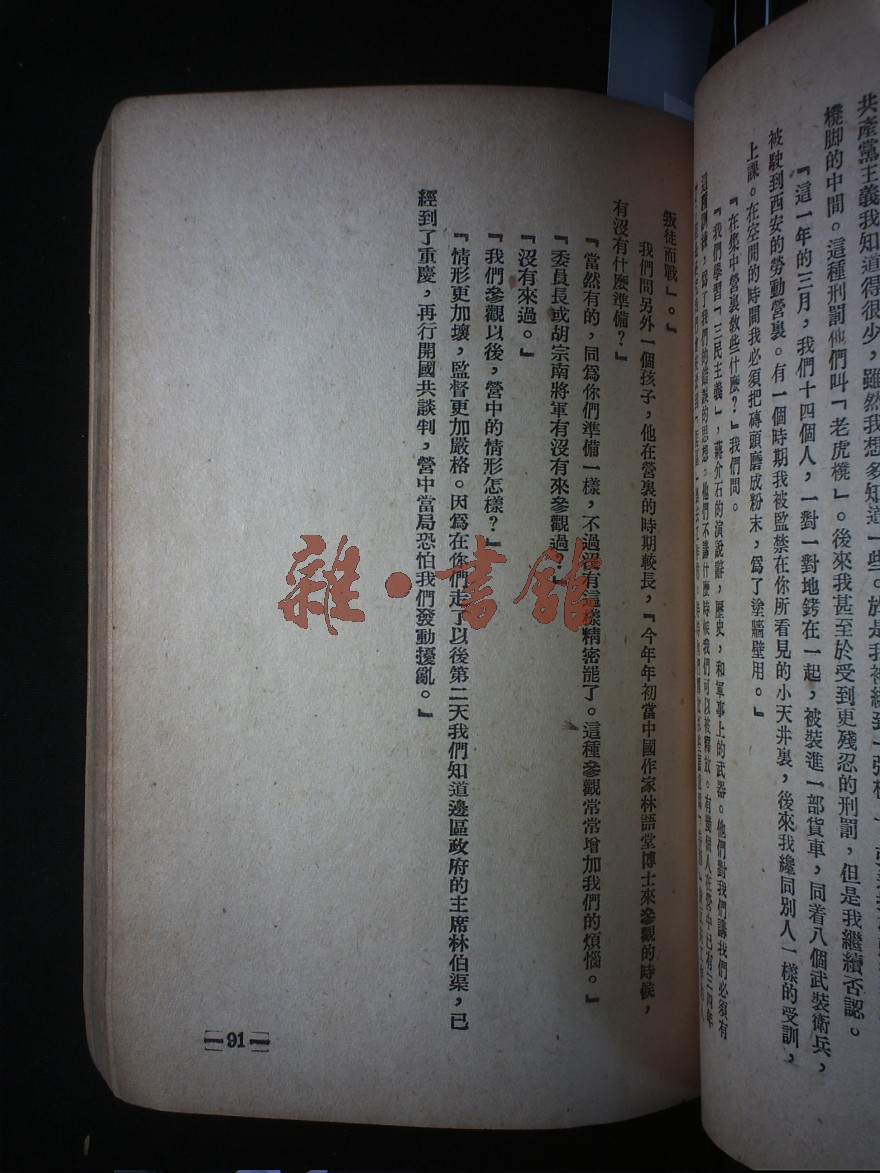 共產黨主義我知道得很少，雖然我想多知道一些。於是我被綁到一張
櫈脚的中間。這種刑罰他們叫「老虎櫈」。後來我甚至於受到更殘忍的刑罰，但是我繼續否認。
『這一年的三月，我們十四個人，一對一對地銬在一起，被裝進一部貨車，同着八個武裝衛兵，
被駛到西安的勞動營裏。有一個時期我被監禁在你所看見的小天井裏，後來我纔同別人一樣的受訓，
上課。在空閒的時間我必須把磚頭磨成粉末，爲了塗牆壁用。』
『在集中營裏敎些什麼？』我們問。
『我們學習「三民主義」，蔣介石的演說辭，歷史，和軍事上的武器。他們對我們講我們必須有
這種訓練，爲了我們的錯誤的思想。他們不講什麼時候我們可以被釋放。有幾個人在營中已有三四年
叛徒而戰」。』
我們問另外一個孩子，他在營裏的時期較長，『今年年初當中國作家林語堂博士來參觀的時候，
有沒有什麼準備？』
『當然有的，同爲你們準備一樣，不過沒有這樣精密罷了。這種參觀常常增加我們的煩惱。』
『委員長或胡宗南將軍有沒有來參觀過？』
『沒有來過。』
『我們參觀以後，營中的情形怎樣？』
『情形更加壞，監督更加嚴格。因爲在你們走了以後第二天我們知道邊區政府的主席林伯渠，已
經到了重慶，再行開國共談判，營中當局恐怕我們發動擾亂。』
91
雜·書館